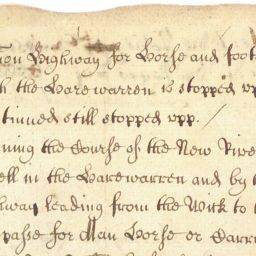 mon Highway for Horse and foot
h the Harewarren is stopped up
tinued still stopped upp. /
ning the Course of the New Rive
ell in the Harewarren and by t
hway leading from the Wick to
passe for Man Horse or Carri